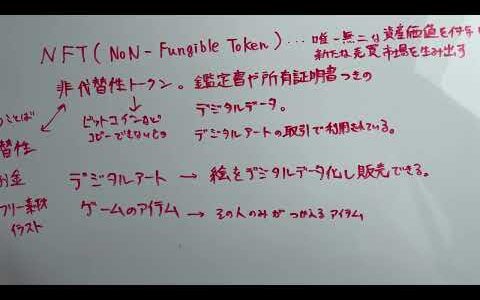 NFT(NoN-Fungible Token)…唯一無二な資産価値を付与し
新たな売買市場を生み出す
非代替性トークン。鑑定書や所有証明書つきの
デジタルデータ。
デジタルアートの取引で利用されている。
ビットコインなど
コピーできないもの
ことば
替性
お金
フリー素材
イラスト
デジタルアート → 絵をデジタルデータ化し販売できる。
ゲームのアイテム → その人のみがつかえるアイテム